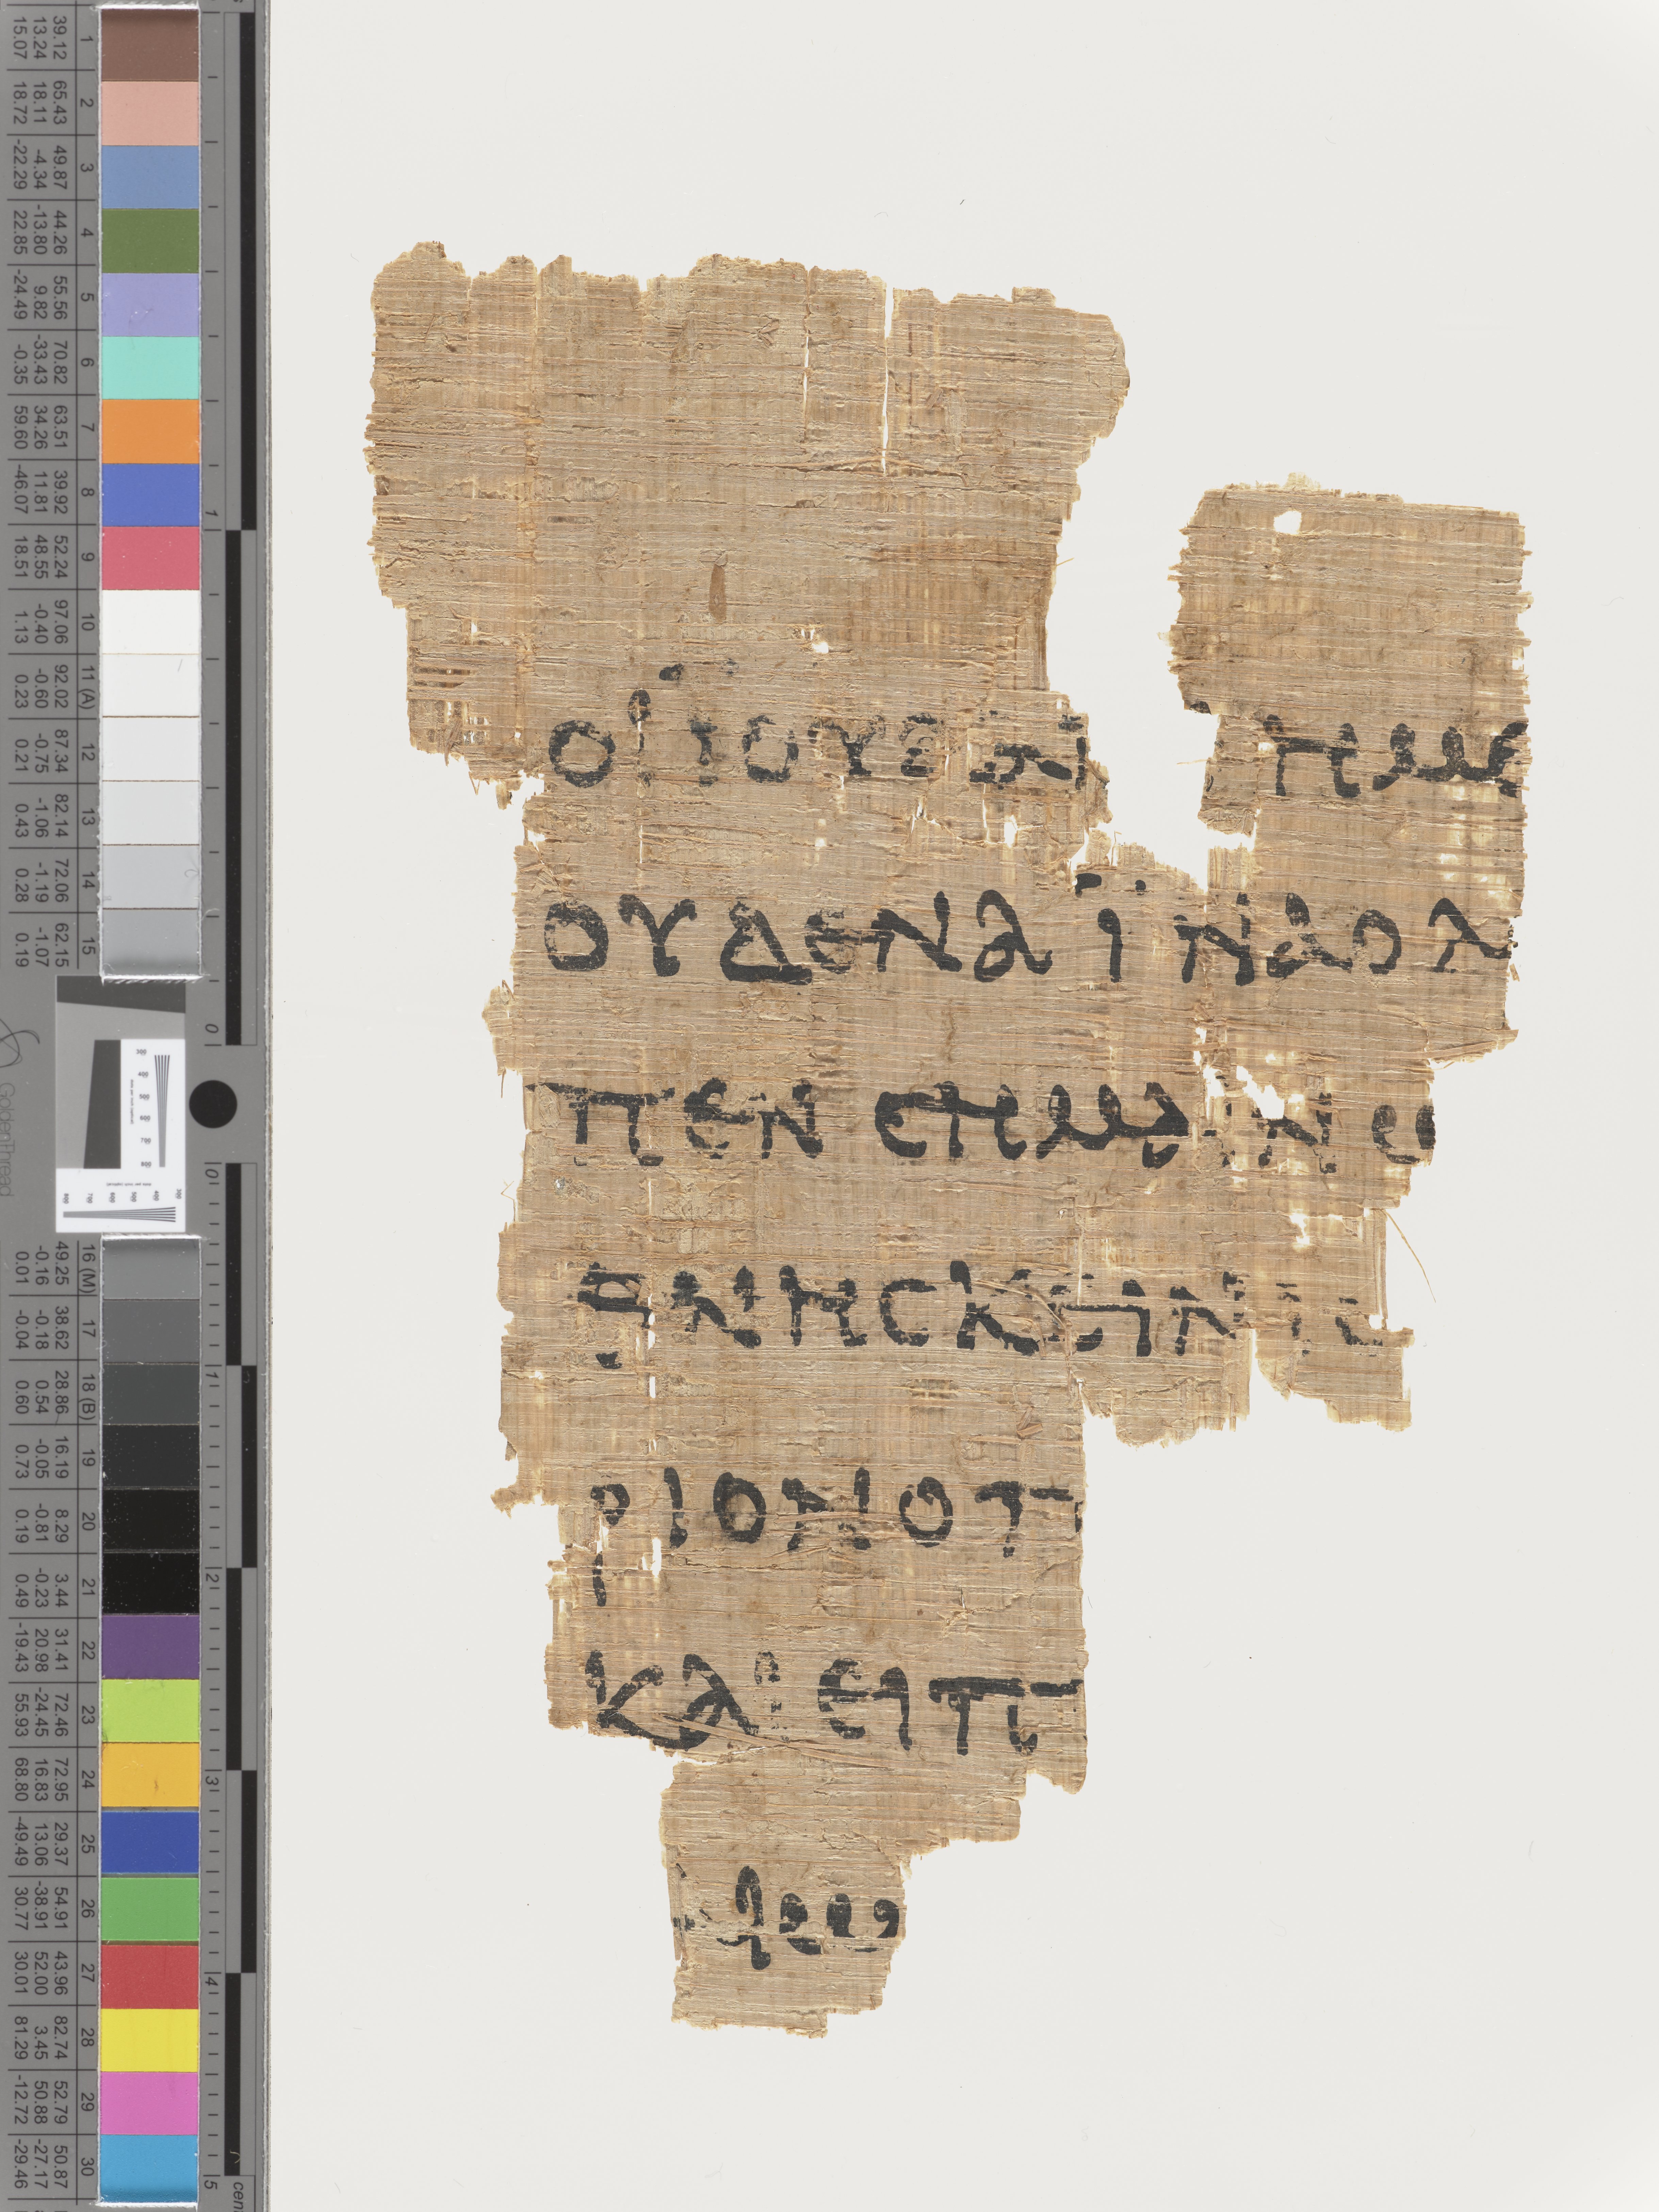 ΟΙ ΙΟΥΔΑΙ ΗΜΕ
ΟΥΔΕΝΑ ΙΝΑ Ο Λ
ΠΕΝ ϹΗΜΑΙΝΩ
ΘΝΗϹΚΕΙΝ ΙϹ
ΡΙΟΝ Ο Π
ΚΑΙ ΕΙΠ
ΑΙΩ
1 2 3 4 5 6 7 8 9 10 11 (A) 12 13 14 15
39.12 65.43 49.87 44.26 55.56 70.82 63.51 39.92 52.24 97.06 92.02 87.34 82.14 72.06 62.15
13.24 18.11 -4.34 -13.80 9.82 -33.43 34.26 11.81 48.55 -0.40 -0.60 -0.75 -1.06 -1.19 -1.07
15.07 18.72 -22.29 22.85 -24.49 -0.35 59.60 -46.07 18.51 1.13 0.23 0.21 0.43 0.28 0.19
Golden Thread
16 (M) 17 18 (B) 19 20 21 22 23 24 25 26 27 28 29 30
49.25 38.62 28.86 16.19 8.29 3.44 31.41 72.46 72.95 29.37 54.91 43.96 82.74 52.79 50.87
-0.16 -0.18 0.54 -0.05 -0.81 -0.23 20.98 -24.45 16.83 13.06 -38.91 52.00 3.45 50.88 -27.17
0.01 -0.04 0.60 0.73 0.19 0.49 -19.43 55.93 68.80 -49.49 30.77 30.01 81.29 -12.72 -29.46
1 0
0 1 2 3 4 5